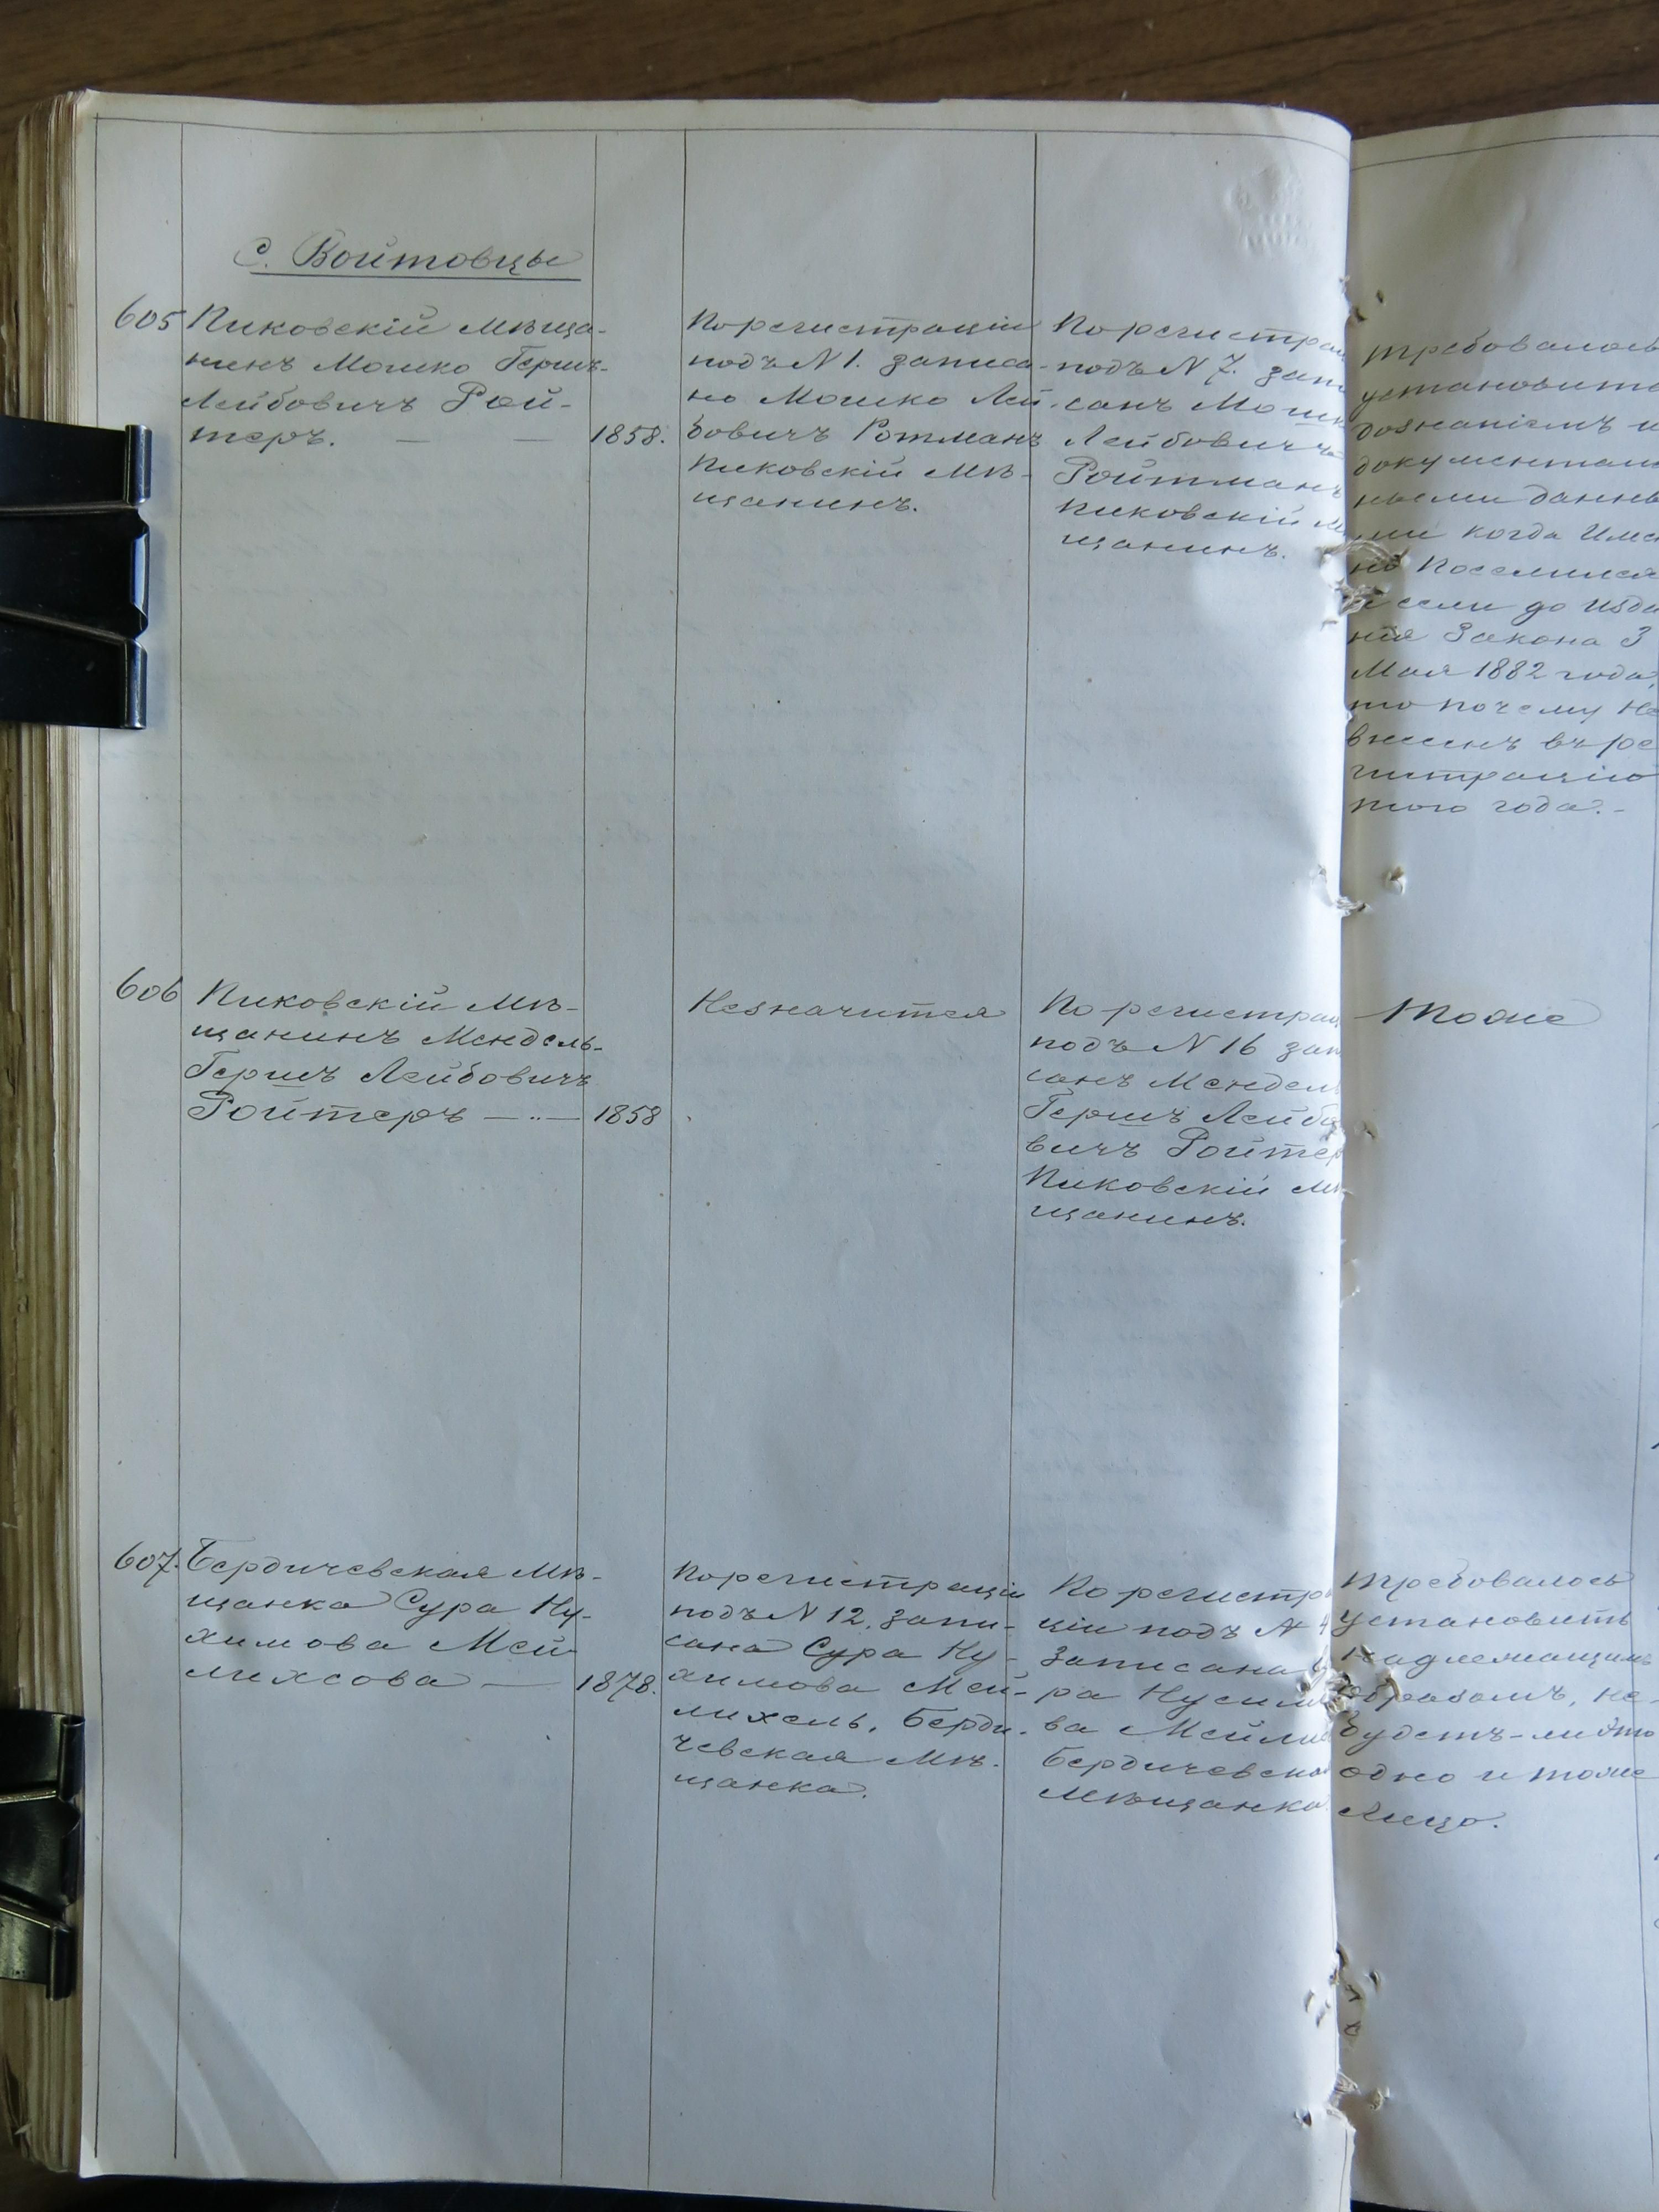 С. Войтовцы
605 Пиковскій Мѣща-
нинъ Мошко Гершъ-
Лейбовичъ Рой-
теръ. — — 1858.
По регистраціи
подъ N 1. записа-
но Мошко Лей-
бовичъ Ротманъ
Пиковскій Мѣ-
щанинъ.
По регистрац
подъ N 7. запи
санъ Мошк
Лейбовичъ
Ройтманъ
Пиковскій М
щанинъ.
требовалось
установить
дознаніемъ и
документаль
ными данны
ми когда Име
но Поселился
и если до изда
нія Закона 3
Мая 1882 года,
то почему не
внесенъ въ ре
гистрацію
того года.-
606 Пиковскій Мѣ-
щанинъ Мендель-
Гершъ Лейбовичъ
Ройтеръ — 1858
Незначится
По регистрац
подъ N 16 зап
санъ Мендель
Гершъ Лейбо
вичъ Ройтер
Пиковскій Мѣ-
щанинъ.
тоже
607. Бердичевская Мѣ-
щанка Сура Ну-
химова Мей-
лихсова — 1878.
По регистраціи
подъ N 12. запи-
сана Сура Ну-
химова Мей-
лихель, Берди-
чевская Мѣ-
щанка.
По регистра
ціи подъ N 4
Записана
ра Нусим
ва Мейли
Бердичевска
Мѣщанка
требовалось
установить
надлежащимъ
образомъ, не-
будетъ-ли это
одно и тоже
Лицо.